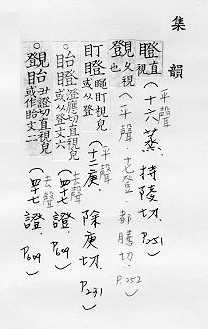 集韻
瞪 直視 (平聲 十六蒸. 持陵切. P.251)
覴 久視也 (平聲 十七登. 都騰切. P.252)
盯瞪 瞠盯視皃或从登 (平聲 十二庚. 除庚切. P.231)
眙瞪 澄應切直視皃或从登文六 (去聲 四十七證. P.609)
覴眙 丑證切直視皃或作眙文二 (去聲 四十七證. P.609)